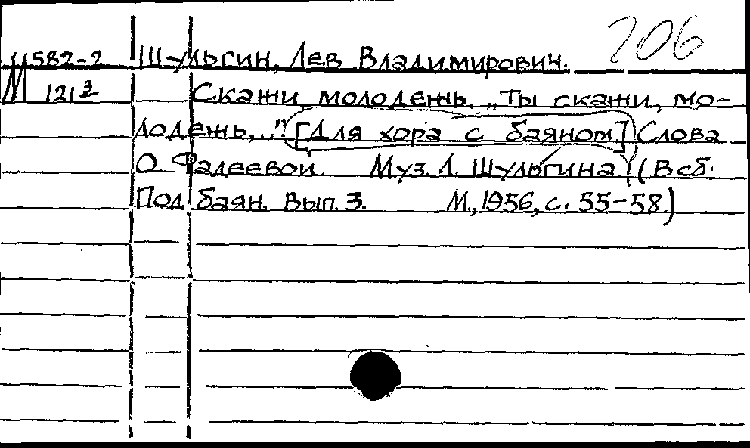 706
М 582-2 Шульгин, Лев Владимирович.
121 3 Скажи, молодежь. „Ты скажи, мо-
лодежь,.." [Для хора с баяном.] Слова
О. Фадеевой. Муз. Л. Шульгина. (В сб.
Под баян. Вып. 3. М., 1956, с. 55-58.)